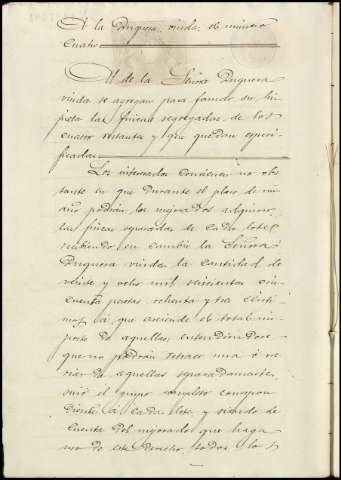 A la Duquesa viuda, el número
cuatro
Al de la Señora Duquesa
viuda se agregan para formar su hi-
jueta las fincas segregadas de los
cuatro restantes y que quedan especi-
ficadas.
Los interesados convienen no obs-
tante en que durante el plazo de un
año podrán los mejorados adquirir
las fincas separadas de cada lote,
recibiendo en cambio la Señora
Duquesa viuda la cantidad de
veinte y ocho mil seiscientas cin-
cuenta pesetas ochenta y tres cénti-
mos, á que asciende el total im-
porte de aquellas, entendiéndose
que no podrán retraer una ó va-
rias de aquellas separadamente,
sino el grupo completo correspon-
diente á cada lote, y siendo de
cuenta del mejorado que haga
uso de este derecho todos los